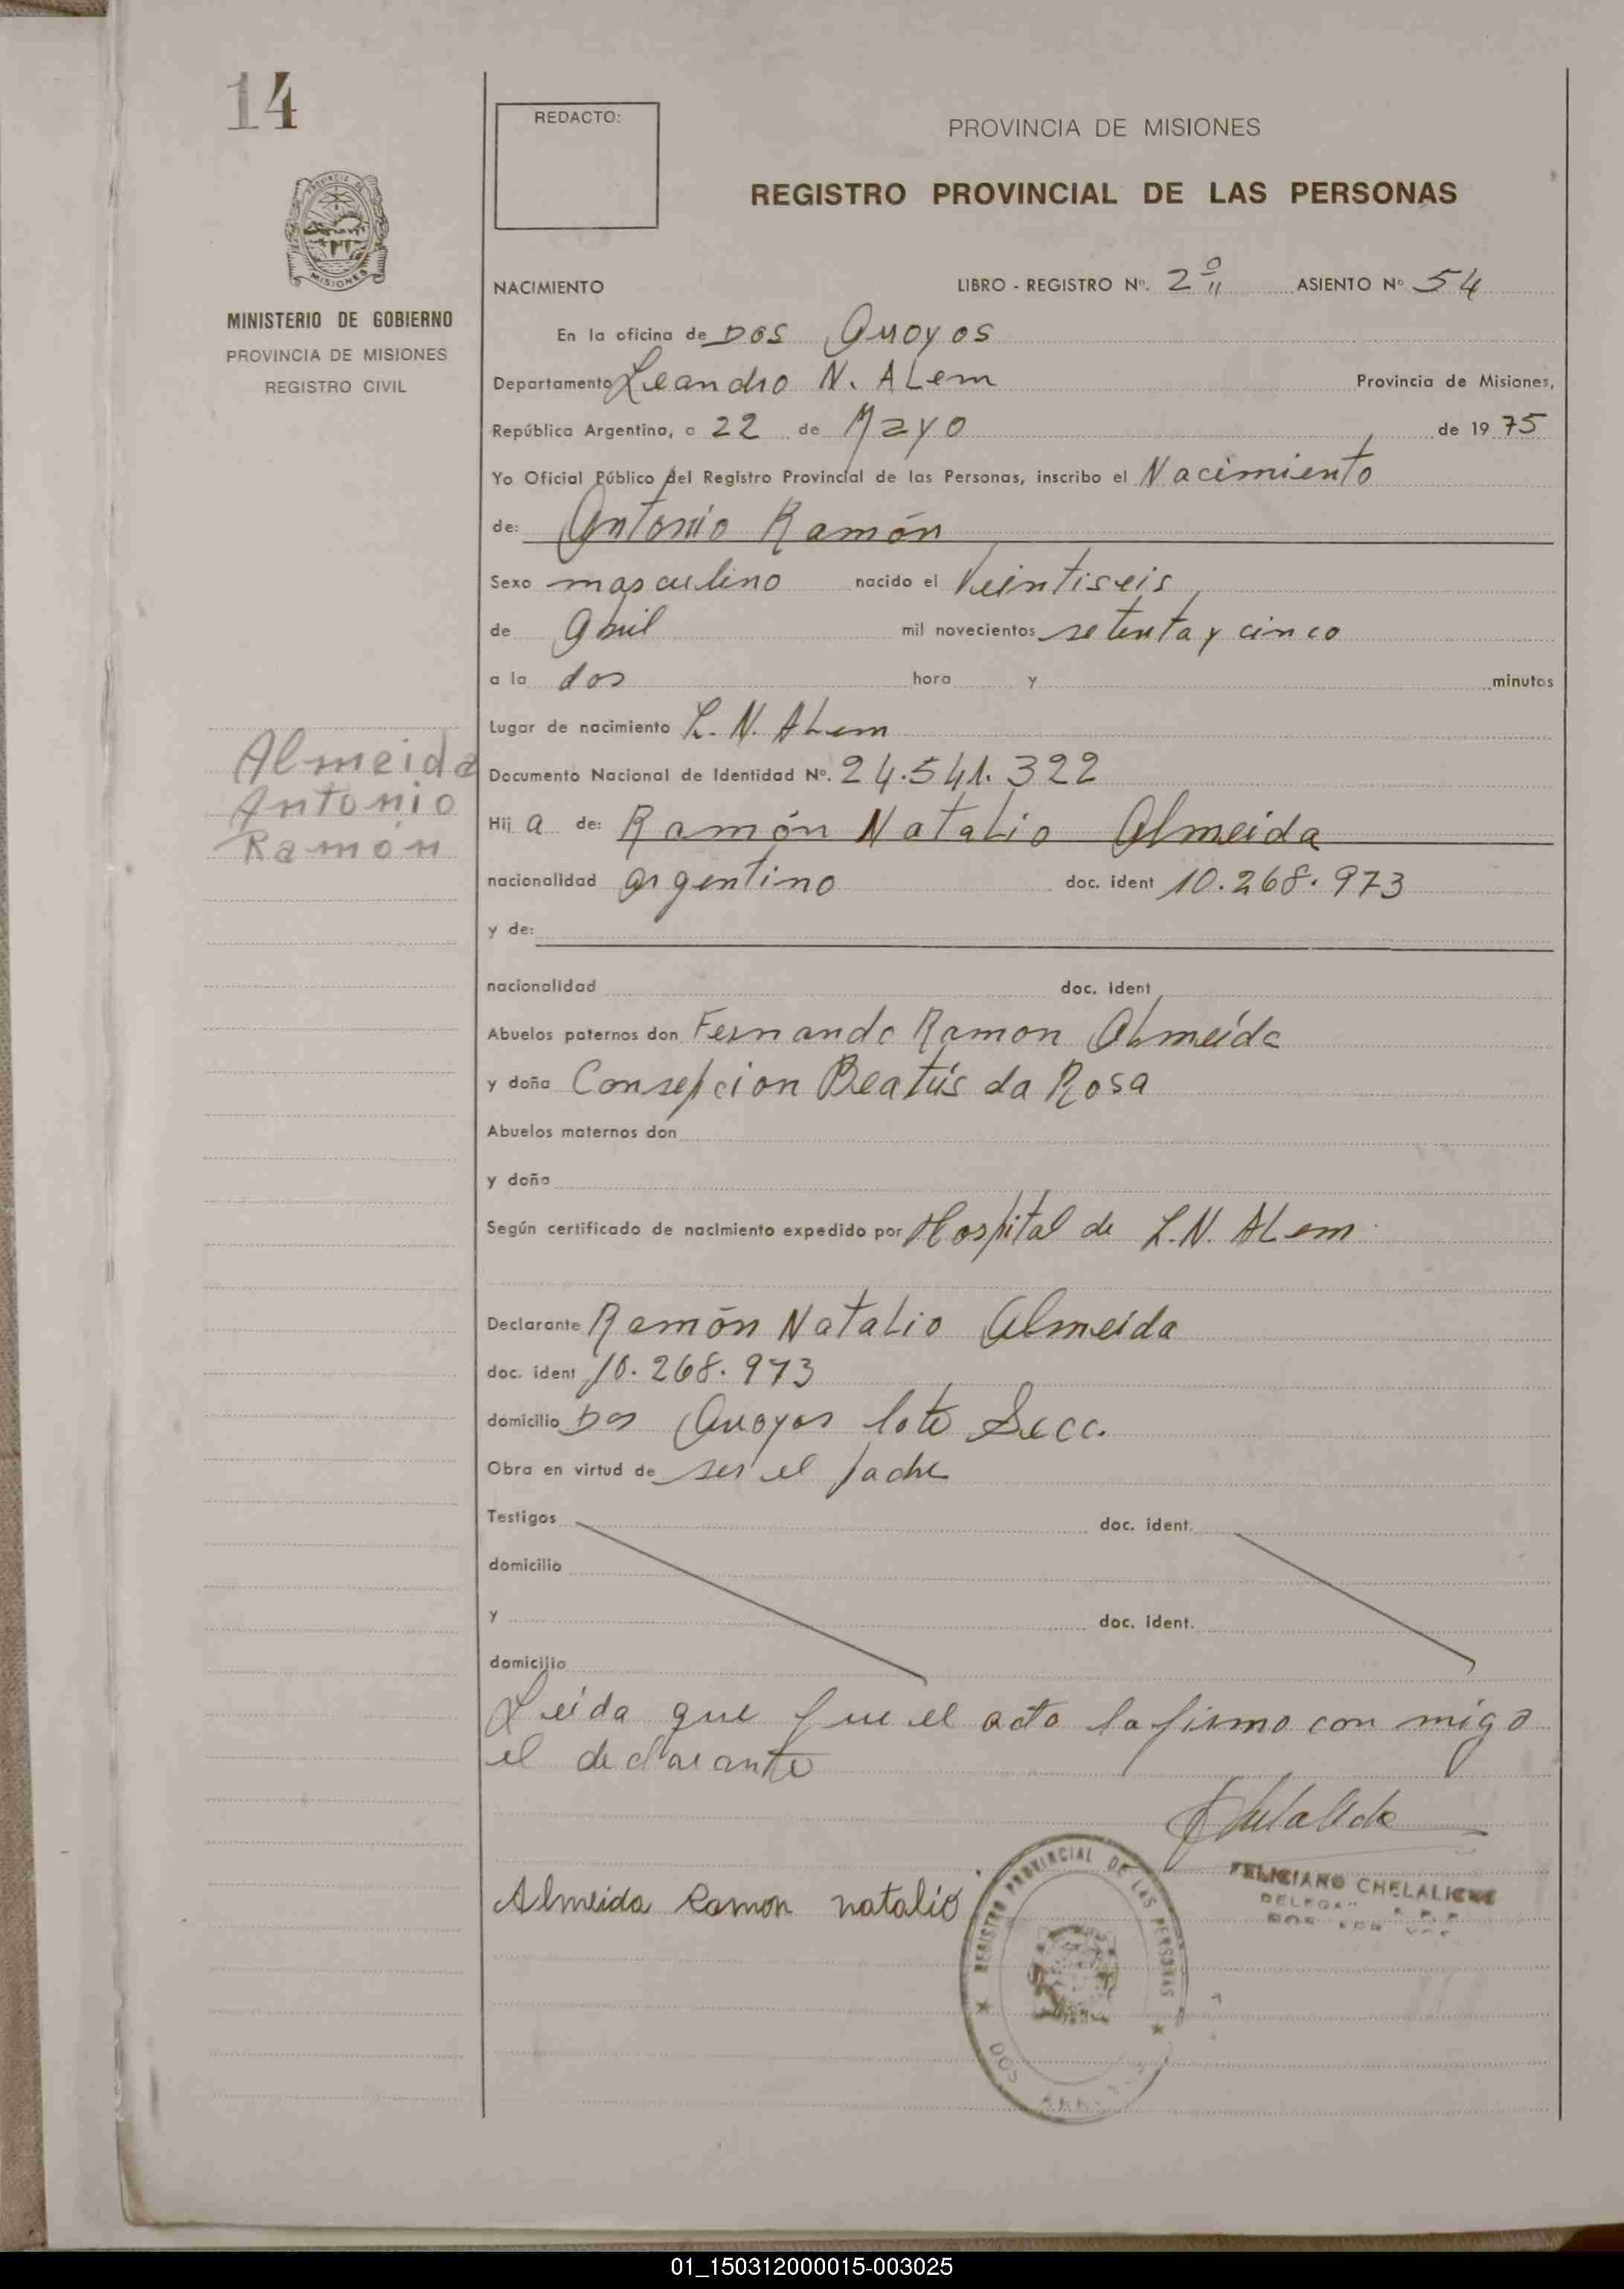 14
REDACTO:
PROVINCIA DE MISIONES
REGISTRO PROVINCIAL DE LAS PERSONAS
PROVINCIA DE
MISIONES
MINISTERIO DE GOBIERNO
PROVINCIA DE MISIONES
REGISTRO CIVIL
NACIMIENTO LIBRO - REGISTRO Nº. 2º " ASIENTO Nº 54
En la oficina de Dos Arroyos
Departamento Leandro N. ALem Provincia de Misiones,
República Argentina, a 22 de Mayo de 1975
Yo Oficial Público del Registro Provincial de las Personas, inscribo el Nacimiento
de: Antonio Ramón
Sexo masculino nacido el Veintiseis
de Abril mil novecientos setenta y cinco
a la dos hora y minutos
Lugar de nacimiento L. N. ALem
Almeida
Antonio
Ramón
Documento Nacional de Identidad Nº. 24.541.322
Hij a de: Ramón NataLio Almeida
nacionalidad argentino doc. ident 10.268.973
y de:
nacionalidad doc. ident
Abuelos paternos don Fernando Ramon ALmeida
y doña Consepcion Beatris da Rosa
Abuelos maternos don
y doña
Según certificado de nacimiento expedido por Hospital de L.N. ALem
Declarante Ramón NataLio Almeida
doc. ident 10.268.973
domicilio Dos Arroyos lote Secc.
Obra en virtud de ser el padre
Testigos doc. ident.
domicilio
y doc. ident.
domicilio
Leida que fue el acta la firmo con migo
el declarante
Almeida Ramon natalio
FELICIANO CHELALICHE
REGISTRO PROVINCIAL DE LAS PERSONAS
DOS
01_150312000015-003025